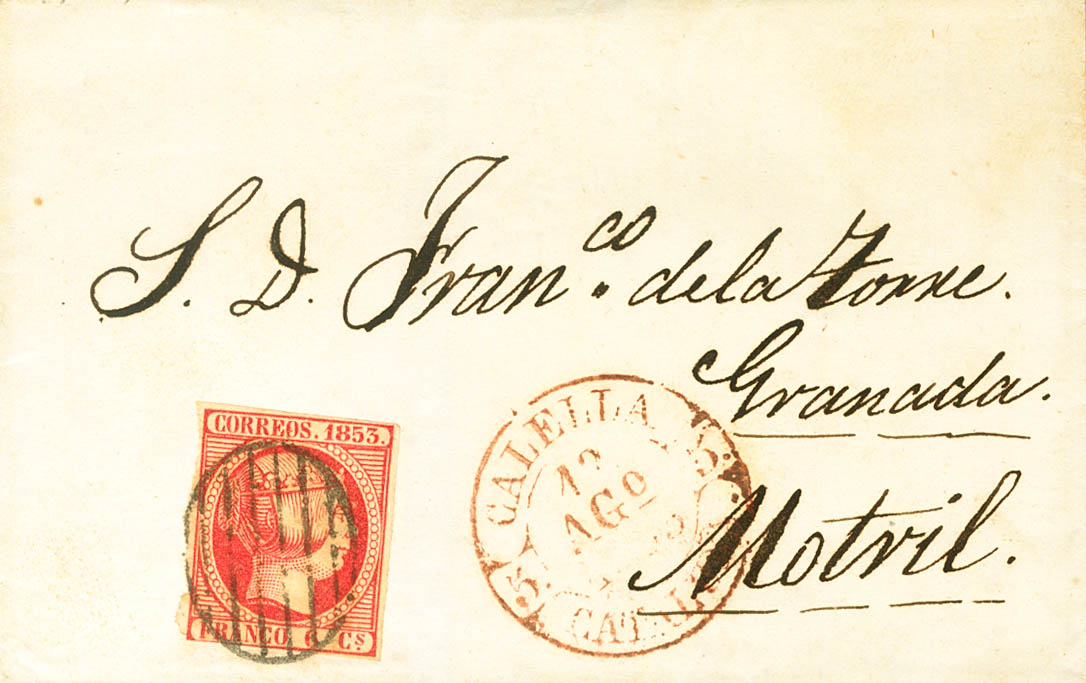 S. D. Fran.co de la Torre.
Granada.
Motril.
CORREOS. 1853.
FRANCO 6 Cs
CALELLA
AGO